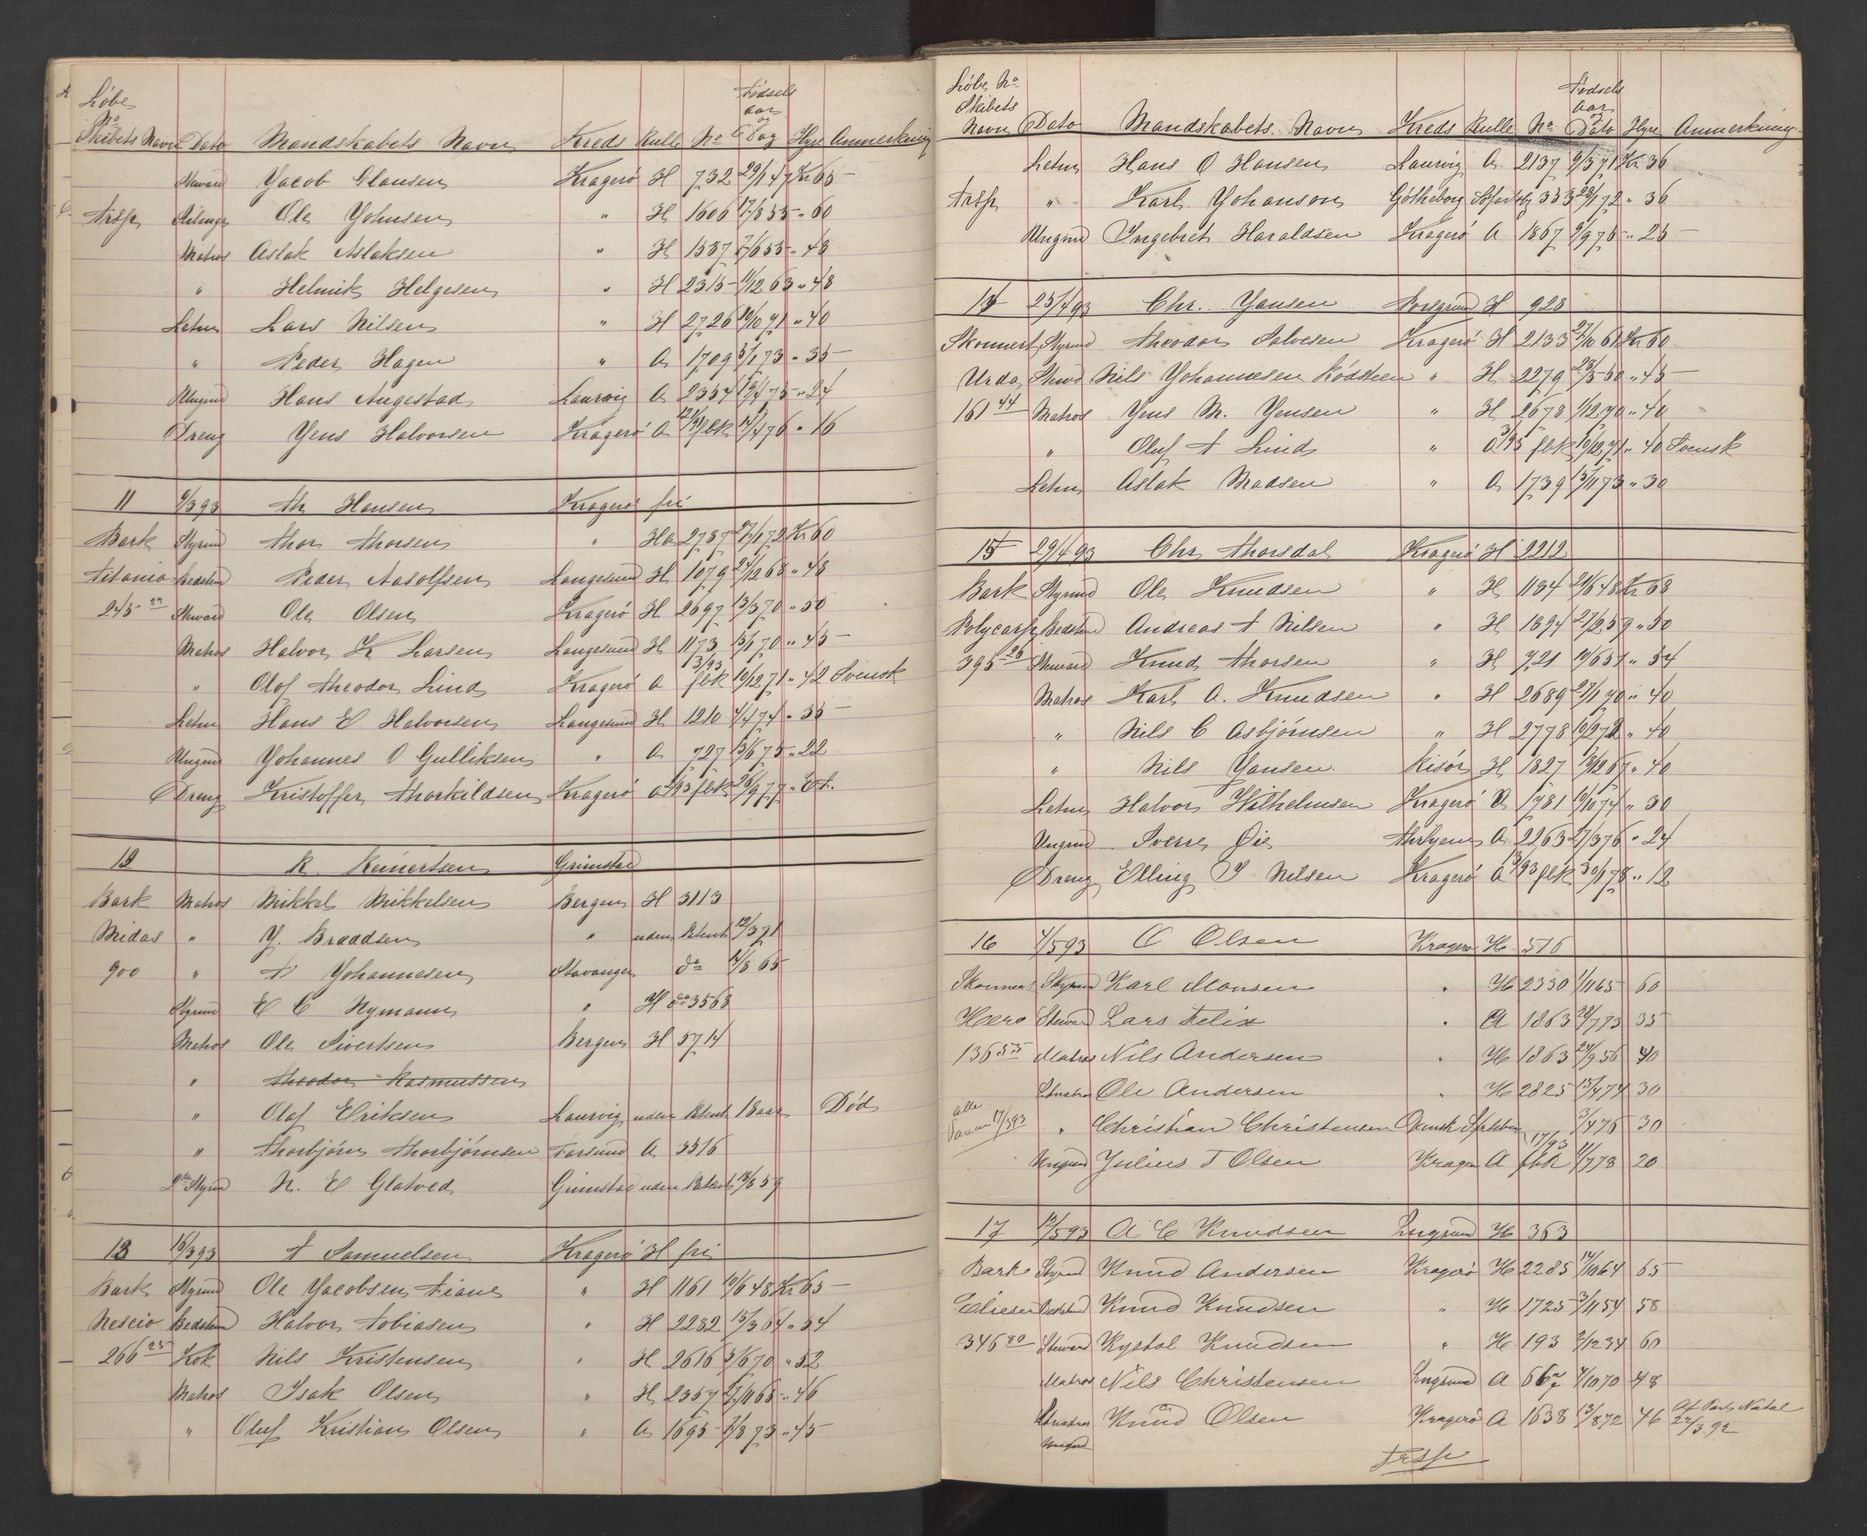 Løbe No
Skibets Navn Dato Mandskabets Navn Kreds Rulle No Fødsels aar og Dag Hyre Anmerkning
Steward Jacob Clausen Kragerø H 732 29/1 47 Kr 65
Trsp Ole Johnsen " H 1606 " 60
Matros Aslak Aslaksen " H 1537 " 48
" Helmik Helgesen " H 2315 11/12 63 " 48
Letm Lars Nilsen " H 2726 19/10 71 " 40
" Peder Hagen " A 1709 5/1 73 " 35
Ungmd Hans Angestad Laurvig A 2354 19/4 75 " 24
Dreng Jens Halvorsen Kragerø A fbk 14/4 76 " 16
11 9/3 93 Th Hansen Kragerø fri
Bark Styrmd Thor Thorsen " H 2787 27/1 72 Kr 60
Titania Bedstmd Peder Aasolfsen Langesund H 1079 24/12 68 " 48
245 Steward Ole Olsen Kragerø H 2697 13/3 70 " 50
Matros Halvor K Larsen Langesund H 1173 13/1 70 " 45
" Olof Theodor Lind Kragerø A 3/93 fbk 10/12 71 " 42 Svensk
Letm Hans E Halvorsen Langesund H 1210 4/4 74 " 35
Ungmd Johannes O Gulliksen " A 727 13/6 75 " 22
Dreng Kristoffer Thorkildsen Kragerø A fbk 26/9 77 "
12 R. Reinertsen Grimstad
Bark Matros Mikkel Mikkelsen Bergen H 3113
Midas " J. Braadsen " uden Patent 19/3 71
900 " T Johannesen Stavanger do 14/8 65
Styrmd E C Nymann " H do 3568
Matros Ole Sivertsen Bergen H 5714
" Theodor Rasmussen
" Olaf Eriksen Laurvig uden Patent 18 aar Død
" Thorbjørn Thorbjørnsen Farsund A 3316
2den Styrmd N. E Glatved Grimstad uden Patent 19/8 59
13 16/3 93 T Samuelsen Kragerø H fri
Bark Styrmd Ole Jacobsen Tiane " H 1161 10/6 48 Kr 65
Nescio Bedstmd Halvor Tobiasen " H 2282 15/3 64 " 54
266 25 Kok Nils Kristensen " H 2616 3/6 70 " 52
Matros Isak Olsen " H 2357 27/11 65 " 46
" Oluf Kristian Olsen " A 1695 2/8 73 " 45
Løbe No
Skibets Navn Dato Mandskabets Navn Kreds Rulle No Fødsels aar og Dato Hyre Anmerkning
Letm Hans O Hansen Laurvig A 2137 9/3 71 Kr 36
Trsp " Karl Johanson Gøtheborg 353 28/1 72 " 36
Ungmd Ingebret Haraldsen Kragerø A 1867 9/9 76 " 25
14 25/4 93 Chr. Jansen Porsgrund H 928
Skonnert Styrmd Theodor Salvesen Kragerø H 2133 27/10 61 Kr 60
Urda Stewd Nils Johannesen Rødsteen " H 2279 28/5 60 " 45
161 44 Matros Jens M. Jensen " H 2678 1/12 70 " 40
" Oluf T Lind " A 3/95 fbk 10/12 71 " 40 Svensk
Letm Aslak Madsen " A 1739 13/11 73 " 30
15 29/4 93 Chr Thorsdal Kragerø H 2212
Bark Styrmd Ole Knudsen " H 1134 21/6 48 Kr 68
Polycarp Bedstmd Andreas T Nilsen " H 1894 27/2 59 " 50
395 26 Steward Knud Thorsen " H 721 19/6 51 " 54
Matros Karl A. Knudsen " H 2689 27/1 70 " 40
" Nils C Asbjørnsen " H 2778 19/2 72 " 40
" Nils Jansen Risør H 1827 13/12 67 " 40
Letm Halvor Wilhelmsen Kragerø A 1781 19/10 74 " 30
Ungmd Sverre Øie A 2263 27/3 76 " 24
Dreng Elling I Nilsen Kragerø A 3/93 fbk 30/1 78 " 12
16 4/5 93 O Olsen Kragerø H 516
Skonnert Styrmd Karl Monsen " H 2330 1/11 65 60
Hero Steward Lars Felix " A 1863 28/7 73 35
136 55 Matros Nils Andersen " H 1863 24/9 56 40
Letmatros Ole Andersen " H 2825 13/4 74 30
alle Samme 17/3 93 " Christian Christensen Dansk 3/4 76 30
Ungmd Julius T Olsen Kragerø A 17/93 fbk 11/7 78 20
17 12/5 93 A C Knudsen Lngsund H 363
Bark Styrmd Knud Andersen Kragerø H 2285 14/10 64 65
Elieser Bedstmd Knud Knudsen " H 1725 3/11 54 58
346 80 Steward Kjøstol Knudsen " H 193 2/12 34 60
Matros Nils Christensen Lngsund A 662 4/10 70 48
Letmatros Knud Olsen Kragerø A 1638 13/8 72 46 Af Port Natal 22/3 92
Ungmd
Trsp